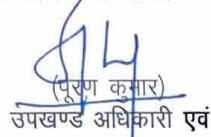 (पूरण कुमार)
उपखण्ड अधिकारी एवं